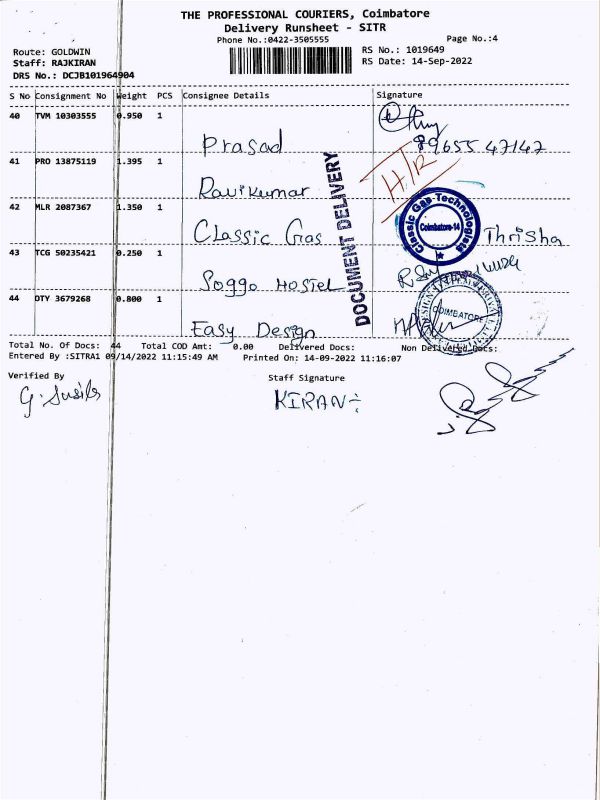 THE PROFESSIONAL COURIERS, Coimbatore
Delivery Runsheet - SITR
Phone No.:0422-3505555 Page No.:4
Route: GOLDWIN RS No.: 1019649
Staff: RAJKIRAN RS Date: 14-Sep-2022
DRS No.: DCJB101964904
S No Consignment No Weight PCS Consignee Details Signature
40 TVM 10303555 0.950 1 Prasad
89655 47147
41 PRO 13875119 1.395 1 Ravikumar H/R
42 MLR 2087367 1.350 1 Classic Gas Thrisha
Classic Gas Technologies
Coimbatore-14
43 TCG 50235421 0.250 1 Soggo Hostel
44 OTY 3679268 0.800 1 Easy Design
COIMBATORE
DOCUMENT DELIVERY
Total No. Of Docs: 44 Total COD Amt: 0.00 Delivered Docs: Non Delivered Docs:
Entered By :SITRA1 09/14/2022 11:15:49 AM Printed On: 14-09-2022 11:16:07
Verified By Staff Signature
G. Susila KIRAN